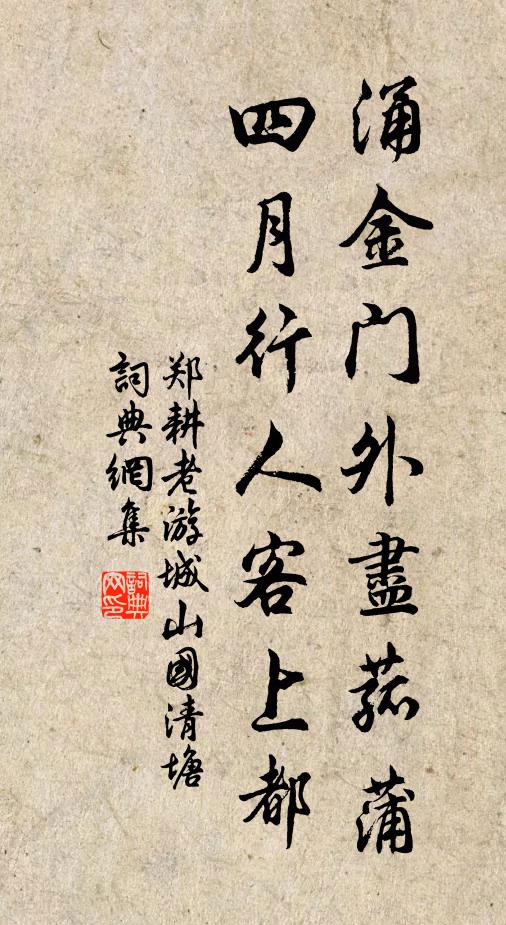 涌金门外盡菰蒲
四月行人客上都
郑耕老游城山國清塘
詞典網集
詞典网印